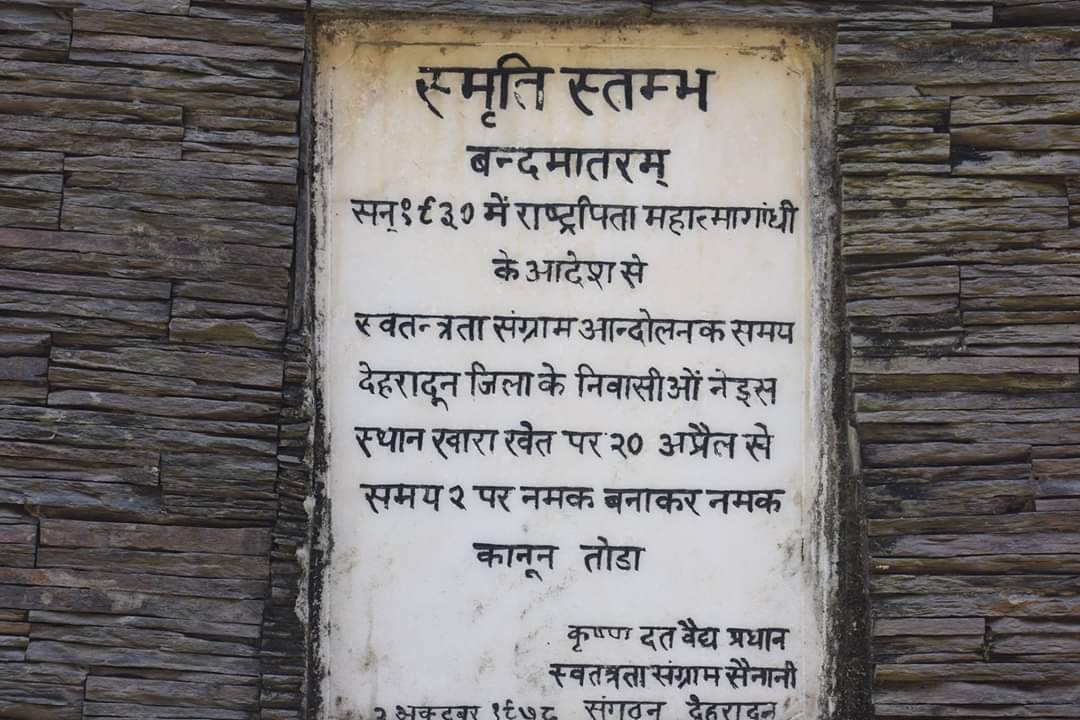 स्मृति स्तम्भ
बन्दमातरम्
सन् १९३० में राष्ट्रपिता महात्मागांधी
के आदेश से
स्वतन्त्रता संग्राम आन्दोलन क समय
देहरादून जिला के निवासीओं ने इस
स्थान खारा खेत पर २० अप्रैल से
समय २ पर नमक बनाकर नमक
कानून तोडा
कृष्ण दत वैद्य प्रधान
स्वतत्रता संग्राम सैनानी
२ अक्टूबर १९७८ संगठन देहरादून